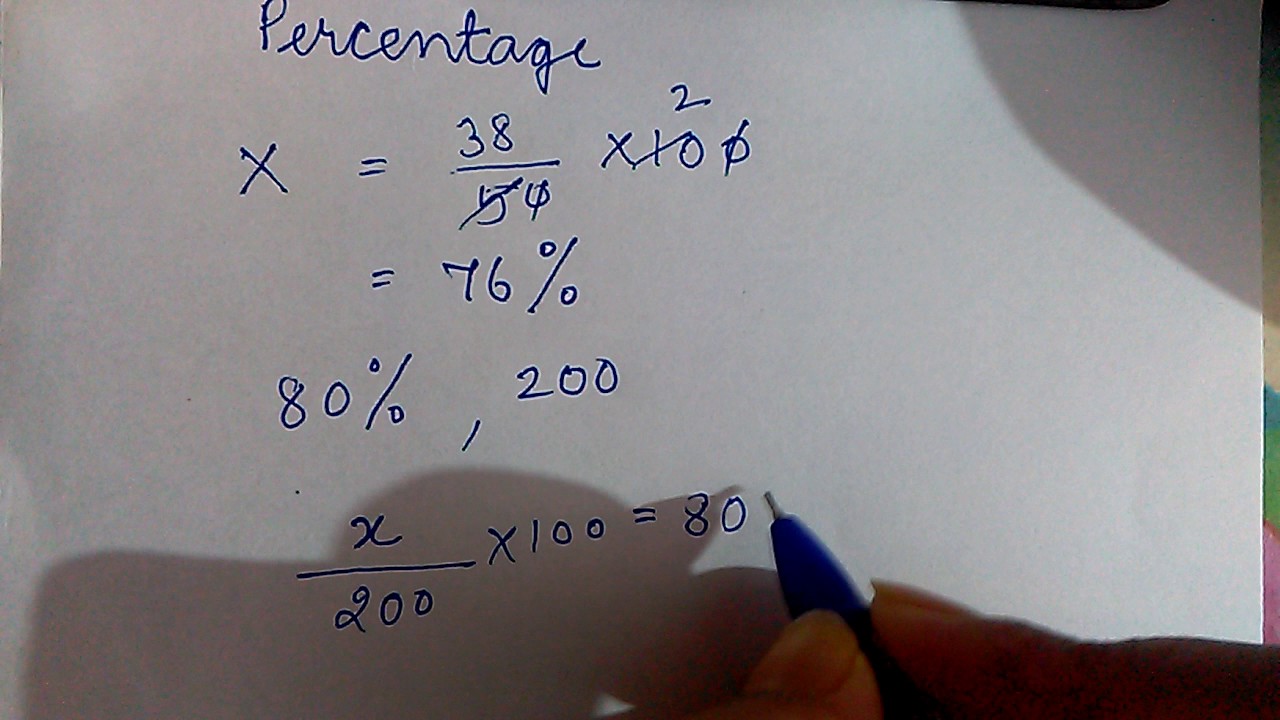 Percentage
X = 38/50 x100 2
= 76%
80% , 200
x/200 x100 = 80